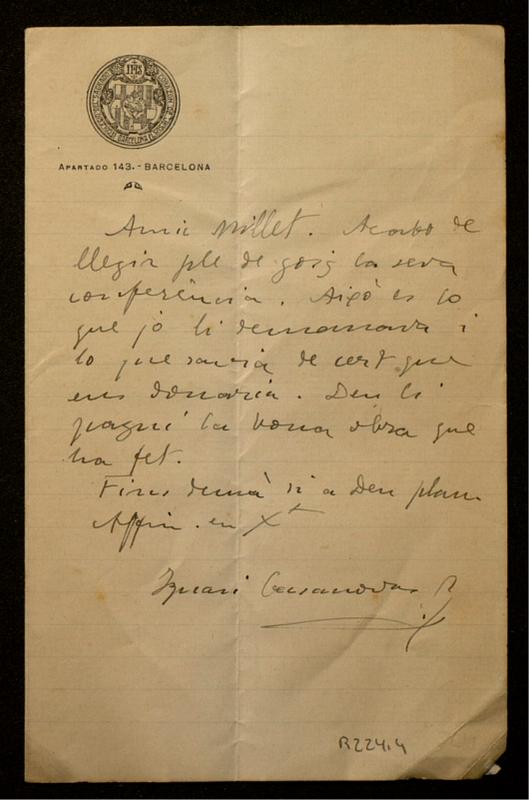 IHS
APARTADO 143.-BARCELONA
Amic Millet. Acabo de
llegir ple de goig la seva
conferència. Aixó es lo
que jo li demanava i
lo que savia de cert que
ens donaria. Deu li
pagui la bona obra que
ha fet.
Fins demá si a Deu plau.
Affm. en Xt
Ignasi Casanovas
B224.4